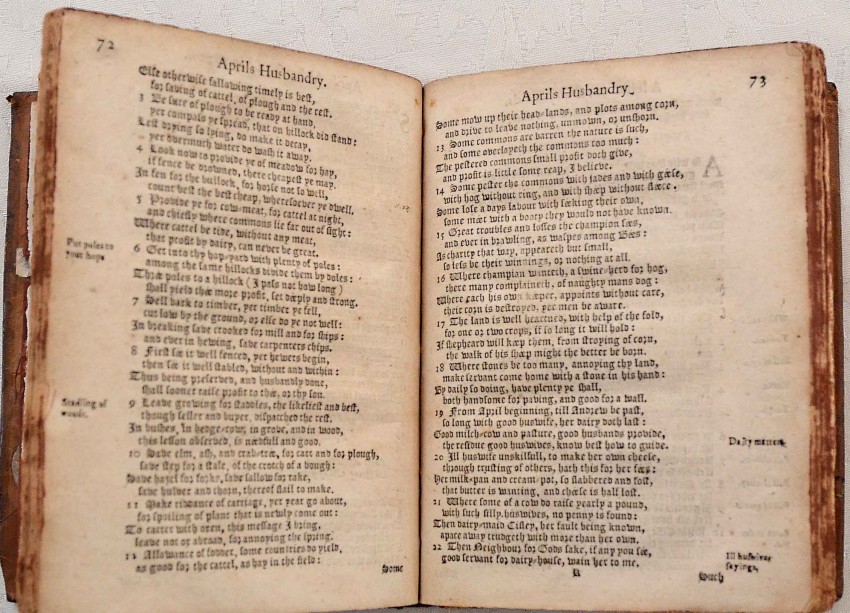 72
Aprils Husbandry.
Else otherwise fallowing timely is best,
for saving of cattel, of plough and the rest.
3 Be sure of plough to be ready at hand,
yer compass ye spread, that on hillock did stand:
Lest drying so lying, do make it decay,
yer overmuch water do wash it away.
4 Look now to provide ye of meadow for hay,
if fence be drowned, there cheapest ye may.
In fen for the bullock, for horse not so well,
count best the best cheap, wheresoever ye dwell.
5 Provide ye for cow-meat, for cattel at night,
and chiefly where commons lie far out of sight:
Where cattel be tide, without any meat,
that profit by dairy, can never be great.
Put poles to
your hops
6 Get into thy hop-yard with plenty of poles:
among the same hillocks divide them by doles:
Three poles to a hillock (I pass not how long)
shall yield thee more profit, set deeply and strong.
7 Sell bark to timber, yer timber ye fell,
cut low by the ground, or else do ye not well:
In breaking save crooked for mill and for ships:
and ever in hewing, save carpenters chips.
8 First see it well fenced, yer hewers begin,
then see it well stadled, without and within:
Thus being preserved, and husbandly done,
shall sooner raise profit to thee, or thy son.
Stadling of
woods.
9 Leave growing for staddles, the likeliest and best,
though seller and buyer, dispatched the rest.
In bushes, in hedge-row, in grove, and in wood,
this lesson observed, is needfull and good.
10 Save elm, ash, and crab-tree, for cart and for plough,
save step for a stile, of the crotch of a bough:
Save hazel for forks, save sallow for rake,
save hulver and thorn, thereof flail to make.
11 Make riddance of carriage, yer year go about,
for spoiling of plant that is newly come out:
To carter with oxen, this message I bring,
leave not oxe abroad, for annoying the spring.
12 Allowance of fodder, some countries do yield,
as good for the cattel, as hay in the field:
Some
73
Aprils Husbandry.
Some mow up their head-lands, and plots among corn,
and drive to leave nothing, unmown, or unshorn.
13 Some commons are barren the nature is such,
and some overlayeth the commons too much:
The pestered commons small profit doth give,
and profit is little some reap, I believe.
14 Some pester the commons with jades and with geese,
with hog without ring, and with sheep without fleece.
Some lose a days labour with seeking their own,
some meet with a booty they would not have known.
15 Great troubles and losses the champion sees,
and ever in brawling, as waspes among Bees:
As charity that way, appeareth but small,
so less be their winnings, or nothing at all.
16 Where champian wanteth, a swine-herd for hog,
there many complaineth, of naughty mans dog:
Where each his own keeper, appoints without care,
their corn is destroyed, yer men be aware.
17 The land is well hearted, with help of the fold,
for one or two crops, if so long it will hold:
If shepheard will keep them, from stroying of corn,
the walk of his sheep might the better be born.
18 Where stones be too many, annoying thy land,
make servant come home with a stone in his hand:
By daily so doing, have plenty ye shall,
both handsome for paving, and good for a wall.
19 From April beginning, till Andrew be past,
so long with good huswife, her dairy doth last:
Good milch-cow and pasture, good husbands provide,
the residue good huswives, know best how to guide.
Dairy matters.
20 Ill huswife unskilfull, to make her own cheese,
through trusting of others, hath this for her fees:
Her milk-pan and cream-pot, so slabbered and sost,
that butter is wanting, and cheese is half lost.
21 Where some of a cow do raise yearly a pound,
with such silly huswives, no penny is found:
Then dairy-maid Cisley, her fault being known,
apace away trudgeth with more than her own.
22 Then Neighbour for Gods sake, if any you see,
good servant for dairy-house, wain her to me.
Ill huswives
sayings,
K
Such